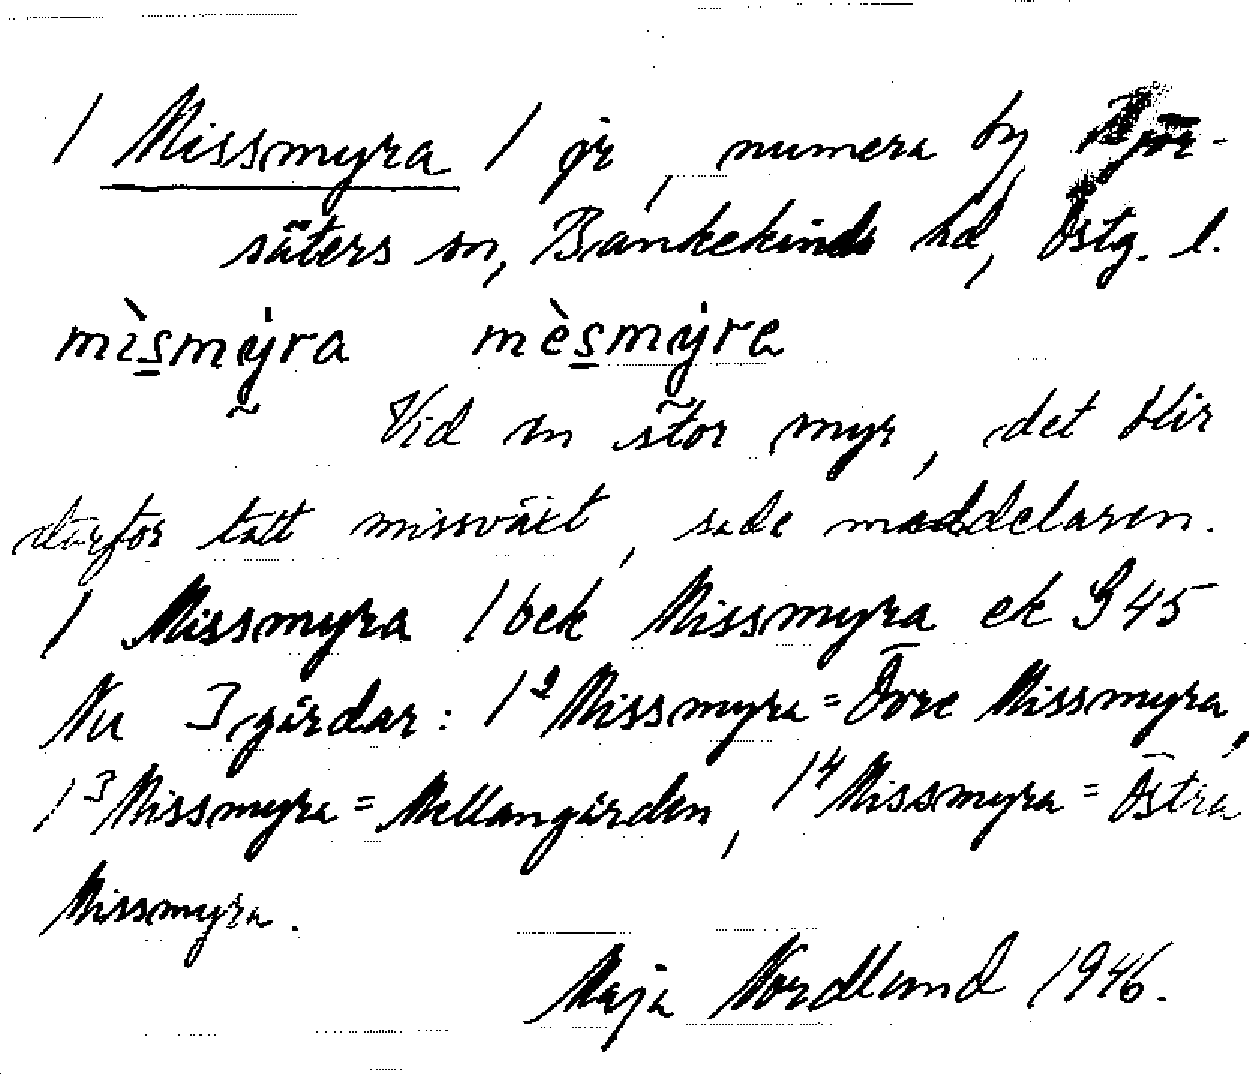 1 Missmyra 1 gd, numera by Björ-
säters sn, Bankekinds hd, Östg. l.
mìsmýra mèsmýra
Vid en stor myr, det blir
därför lätt missväxt, sade meddelaren.
1 Missmyra 1 bek Missmyra ek S 45
Nu 3 gårdar: 1² Missmyra = Övre Missmyra,
1³ Missmyra = Mellangården, 1⁴ Missmyra = Östra
Missmyra.
Maja Nordlund 1946.